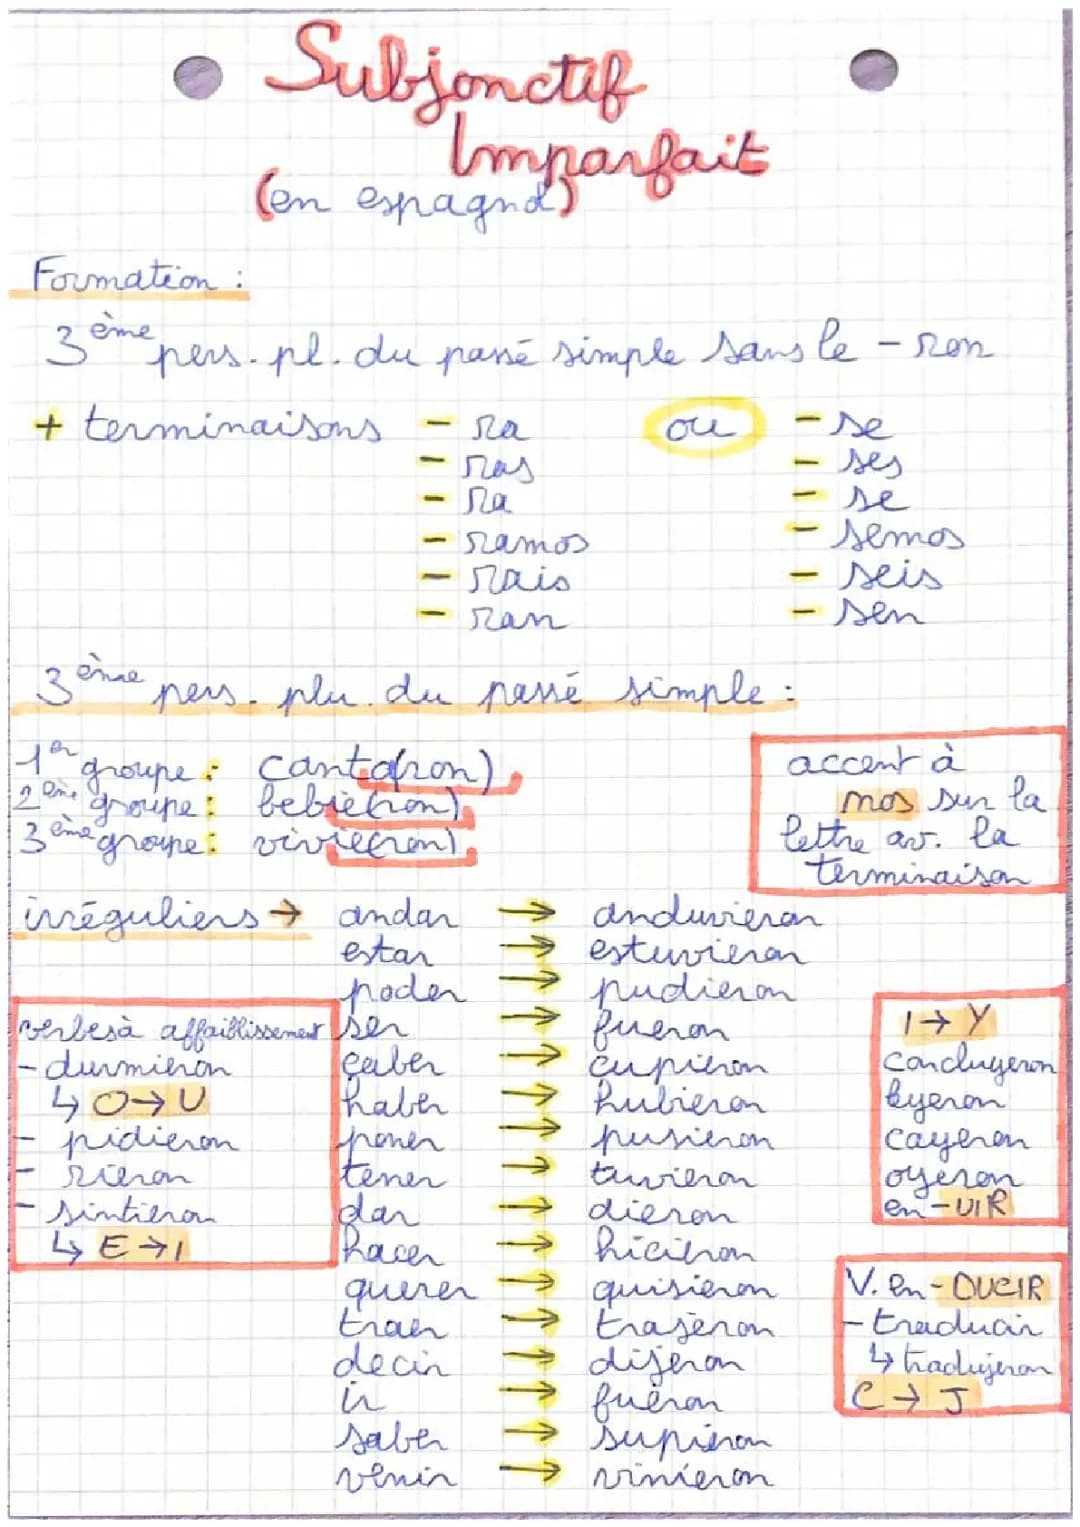 Subjonctif
Imparfait
(en espagnol)
Formation :
3ème pers. pl. du passé simple sans le - ron
+ terminaisons - ra ou - se
- ras - ses
- ra - se
- ramos - semos
- rais - seis
- ran - sen
3ème pers. plu. du passé simple :
1er groupe : canta(ron)
2ème groupe : bebie(ron)
3ème groupe : vivie(ron)
accent à
mos sur la
lettre av. la
terminaison
irréguliers → andar → anduvieron
estar → estuvieron
poder → pudieron
ser → fueron
çaber → cupieron
haber → hubieron
poner → pusieron
tener → tuvieron
dar → dieron
hacer → hicieron
querer → quisieron
traer → trajeron
decir → dijeron
ir → fueron
saber → supieron
venir → vinieron
verbes à affaiblissement
- durmieron
↳ O → U
- pidieron
- rieron
- sintieron
↳ E → I
I → Y
concluyeron
leyeron
cayeron
oyeron
en - UIR
V. en - DUCIR
- traducir
↳ tradujeron
C → J